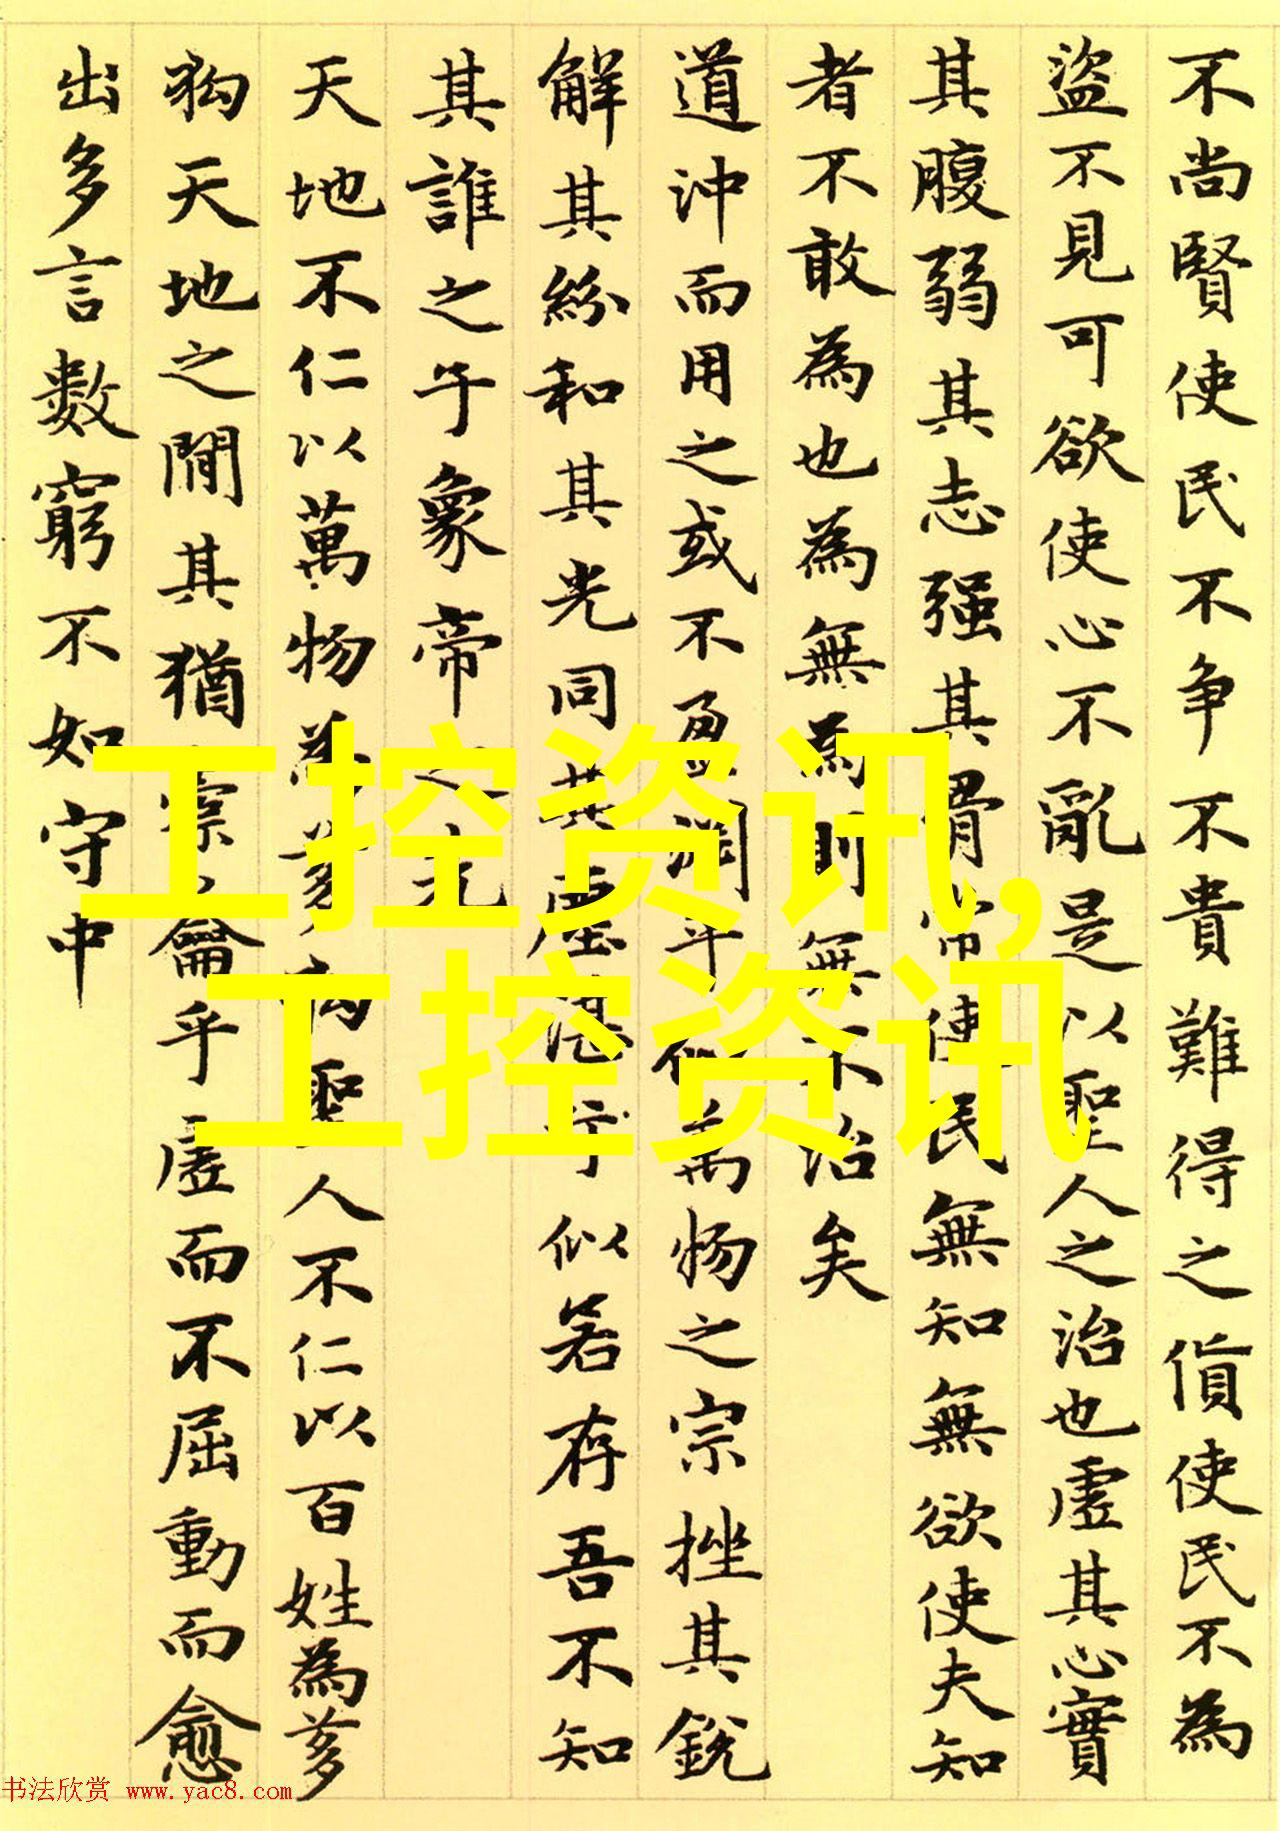 不尚賢使民不争不貴難得之貨使民不為
盜不見可欲使心不亂是以聖人之治也虛其心實
其腹弱其志强其骨常使民無知無欲使夫知
者不敢為也為無為則無不治矣
道沖而用之或不盈淵乎似萬物之宗挫其銳
解其紛和其光同其塵湛兮似若存吾不知
其誰之子象帝之先
天地不仁以萬物為芻狗聖人不仁以百姓為芻
狗天地之間其猶橐籥乎虛而不屈動而愈
出多言數窮不如守中
工控资讯,
工控资讯
书法欣赏 www.yac8.com